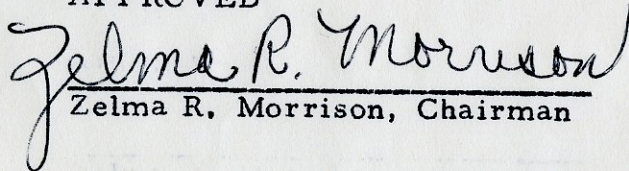 APPROVED
Zelma R. Morrison
Zelma R. Morrison, Chairman